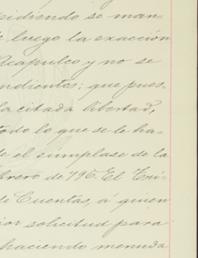 sidiendo se man-
e luego la exacción
Acapulco y no se
ndientes; que pues
la citada libertad,
odo lo que se le ha-
de el cúmplase de la
brero de 796. El Tri-
e Cuentas, á quien
ior solicitud para
haciendo menuda